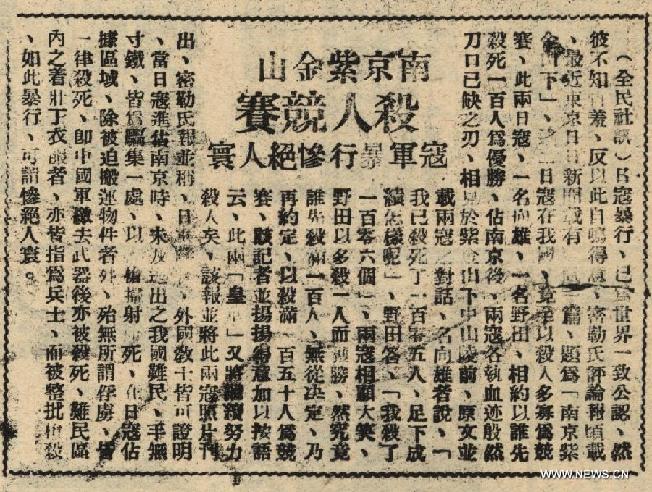 南京紫金山
殺人競賽
寇軍暴行慘絕人寰
（全民社訊）日寇暴行、已爲世界一致公認、然
彼不知自羞、反以此自鳴得意、密勒氏評論附頃載
、最近東京日日新聞載有一篇、題爲「南京紫
金山下」、述二日寇在我國、竟至以殺人多寡爲競
賽、此兩日寇、一名向雄、一名野田、相約以誰先
殺死一百人爲優勝、佔南京後、兩寇各執血迹殷然
刀口已缺之刃、相見於紫金山下中山陵前、原文並
載兩寇之對話、名向雄者說、「
我已殺死了一百零五人、足下成
績怎樣呢」、野田答、「我殺了
一百零六個」、兩寇相顧大笑、
野田以多殺一人而獲勝、然究竟
誰先殺滿一百人、無從決定、乃
再約定、以殺滿一百五十人爲競
賽、該記者並揚揚得意加以按語
云、此兩「皇軍」又將繼續努力
殺人矣、該報並將此兩寇照片刊
出、密勒氏報並稱、日、外國教士皆可證明
、當日寇進佔南京時、未及逃出之我國難民、手無
寸鐵、皆爲驅集一處、以槍掃射死、在日寇佔
據區域、除被迫搬運物件者外、殆無所謂俘虜、皆
一律殺死、卽中國軍繳去武器後亦被殺死、難民區
內之着壯丁衣服者、亦皆指爲兵士、而被整批槍殺
、如此暴行、可謂慘絕人寰。
WWW.NEWS.CN